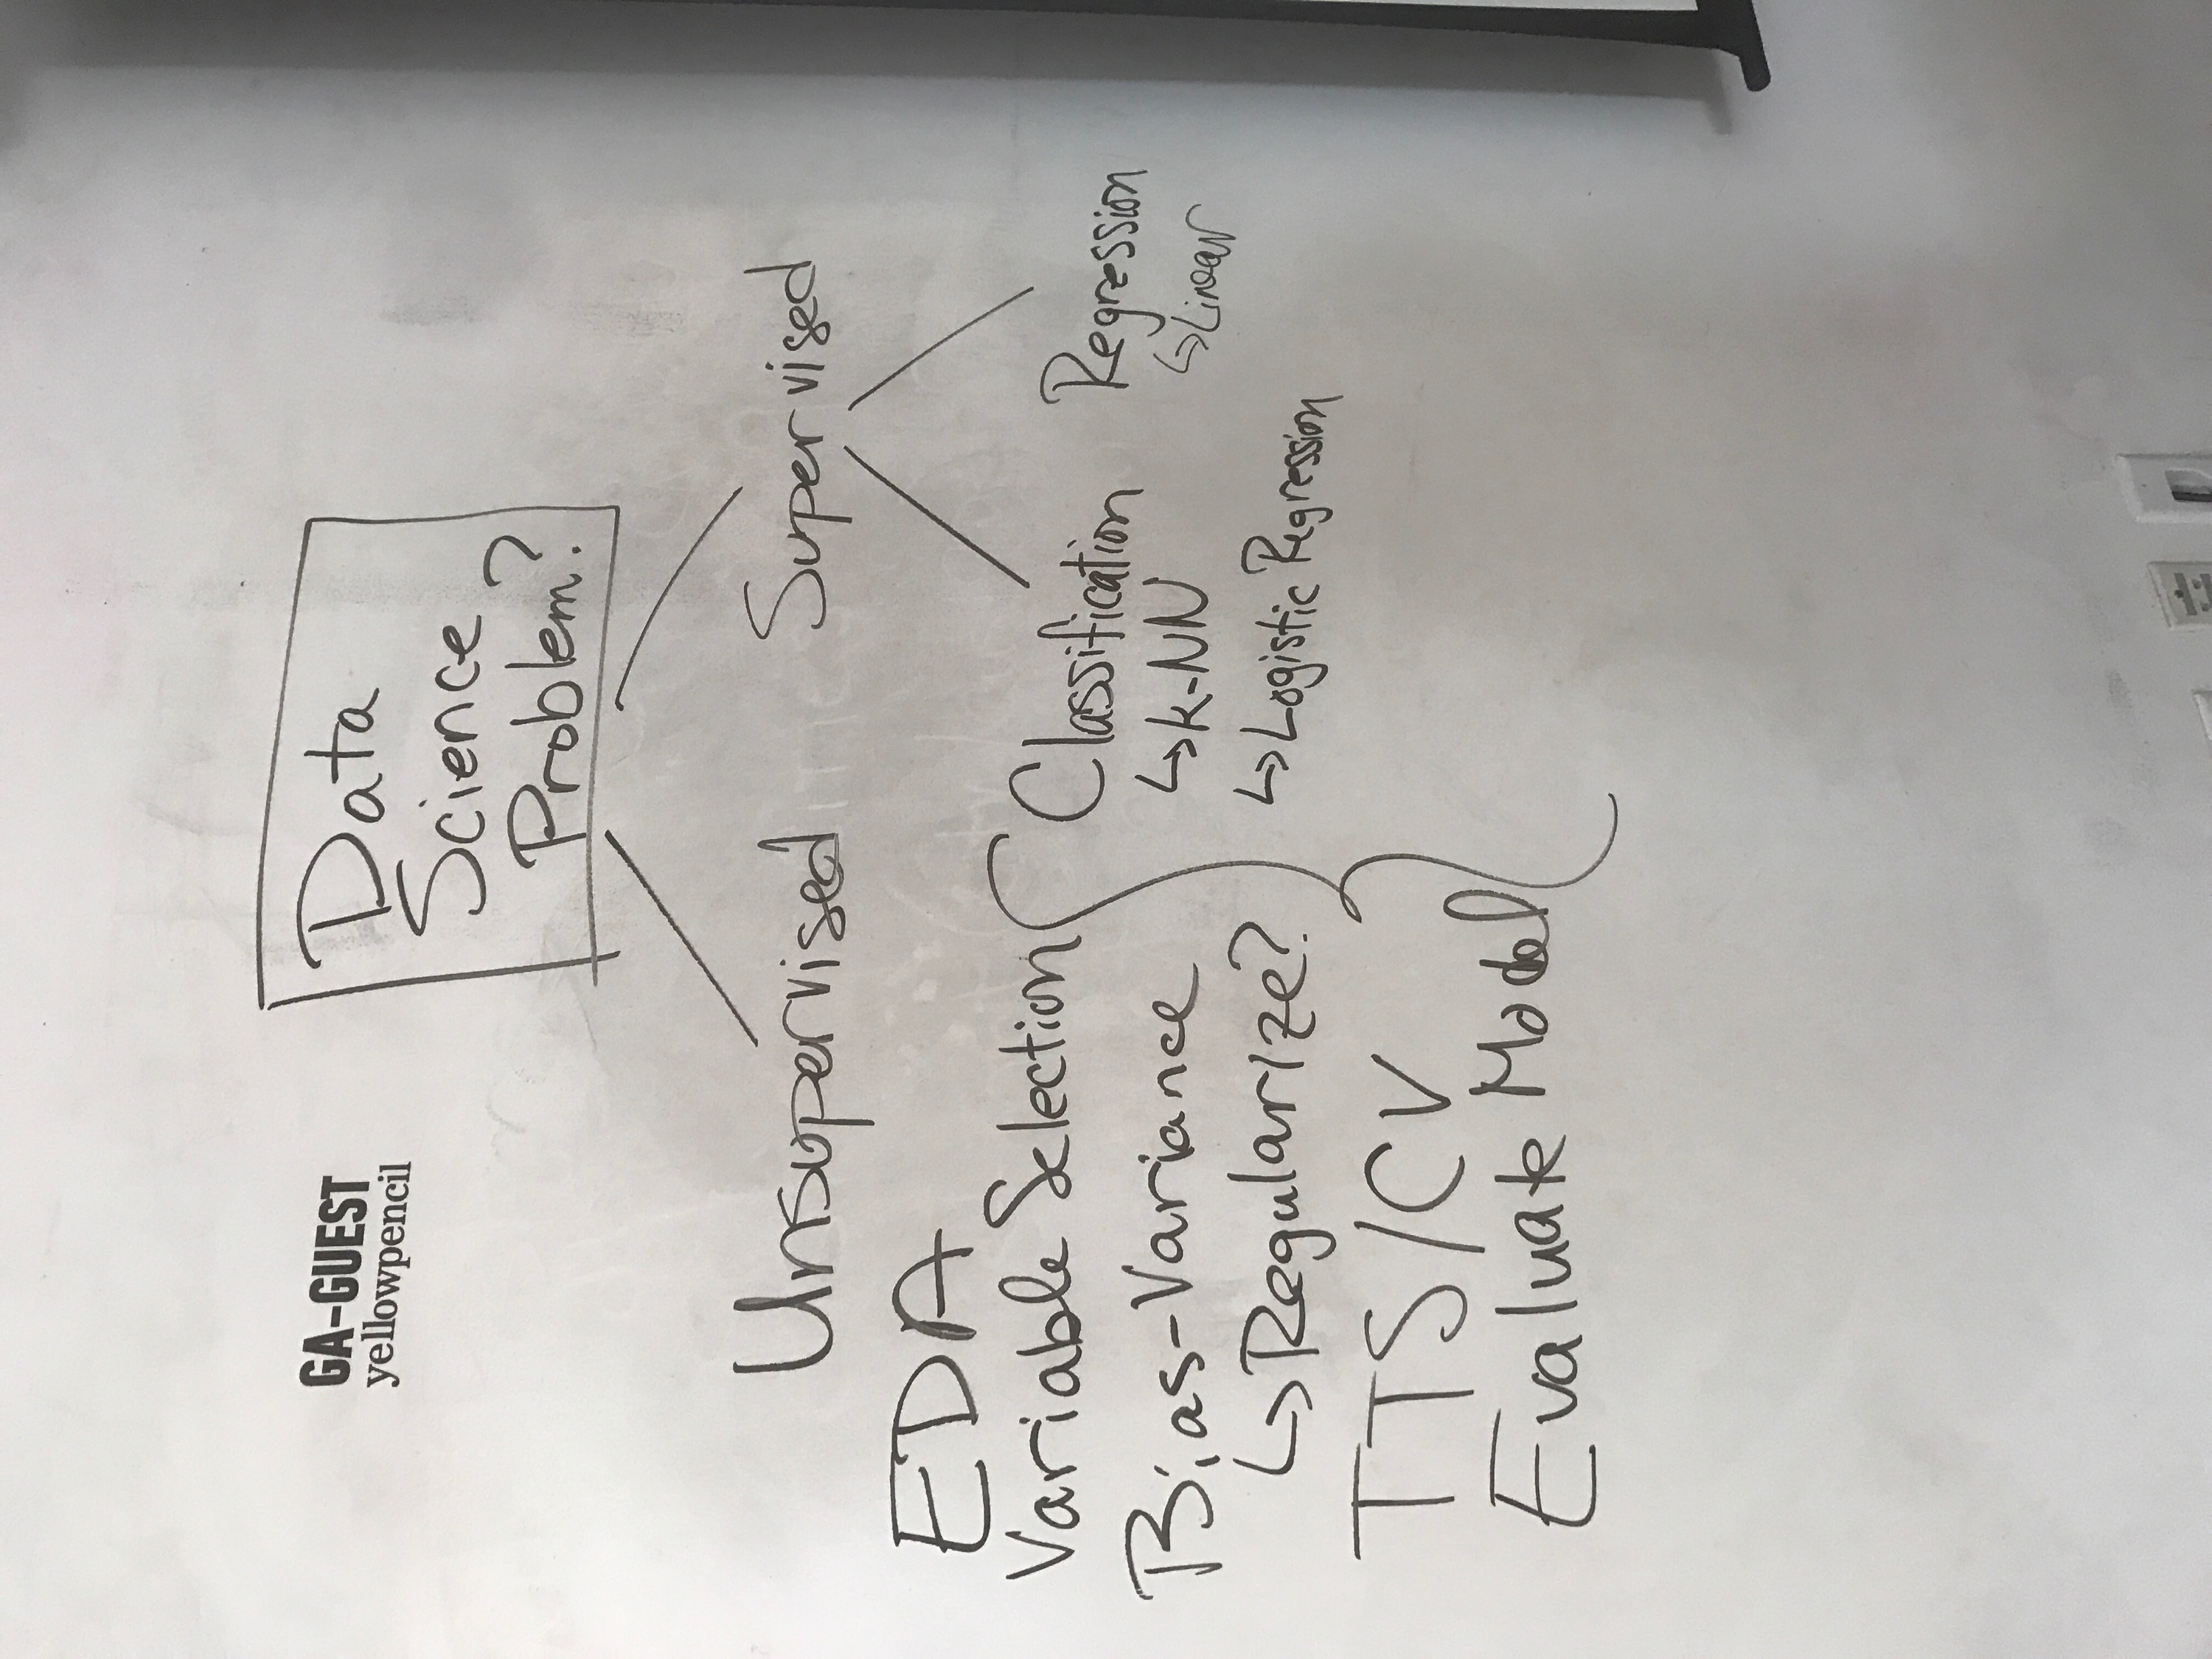 GA-GUEST
yellowpencil
Data
Science
Problem?
Unsupervised
Supervised
EDA
Variable Selection
Bias-Variance
↳ Regularize?
TTS/CV
Evaluate Model
Classification
↳ k-NN
↳ Logistic Regression
Regression
↳ Linear